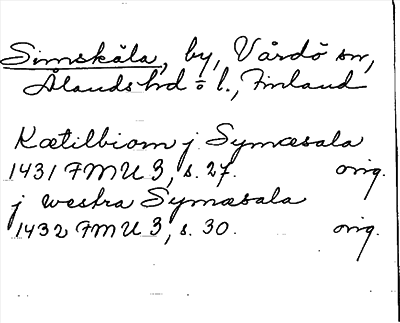 Simskäla, by, Vårdö sn,
Ålands hd o l., Finland
Kætilbiorn j Symæsala
1431 FMU 3, s. 27. orig.
j westra Symæsala
1432 FMU 3, s. 30. orig.